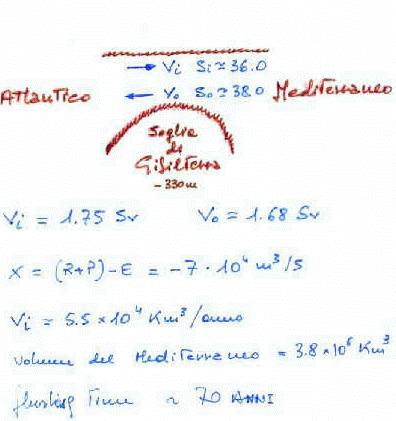 Vi Si ≃ 36.0
Atlantico
Vo So ≃ 38.0
Mediterraneo
Soglia
di
Gibilterra
-330m
Vi = 1.75 Sv Vo ≃ 1.68 Sv
X = (R+P)-E = -7 · 10⁴ m³/s
Vi = 5.5 × 10⁴ Km³/anno
Volume del Mediterraneo = 3.8 × 10⁶ Km³
flushing Time ≃ 70 ANNI